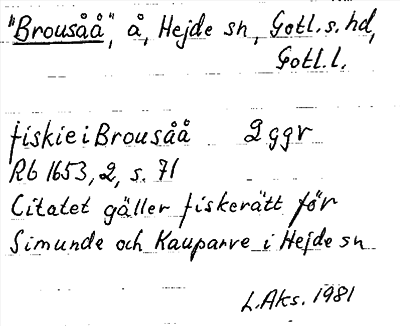 "Brousåå", å, Hejde sn, Gotl.s. hd,
Gotl.l.
fiskie i Brousåå 2 ggr
Rb 1653, 2, s. 71
Citatet gäller fiskerätt för
Simunde och Kauparve i Hejde sn
L.Aks. 1981